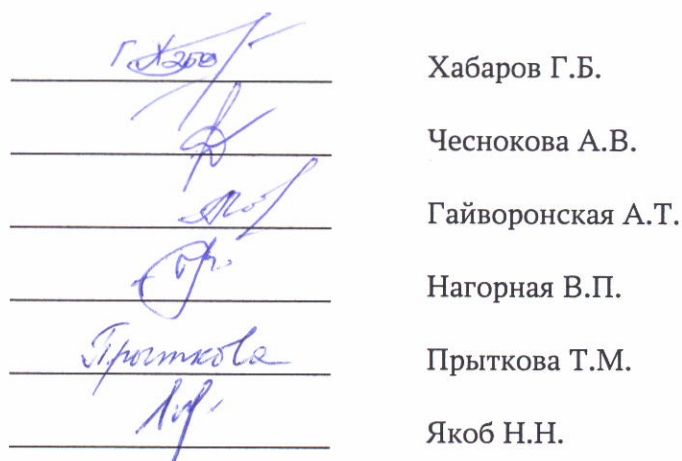 Хабаров Г.Б.
Чеснокова А.В.
Гайворонская А.Т.
Нагорная В.П.
Прыткова Прыткова Т.М.
Якоб Н.Н.